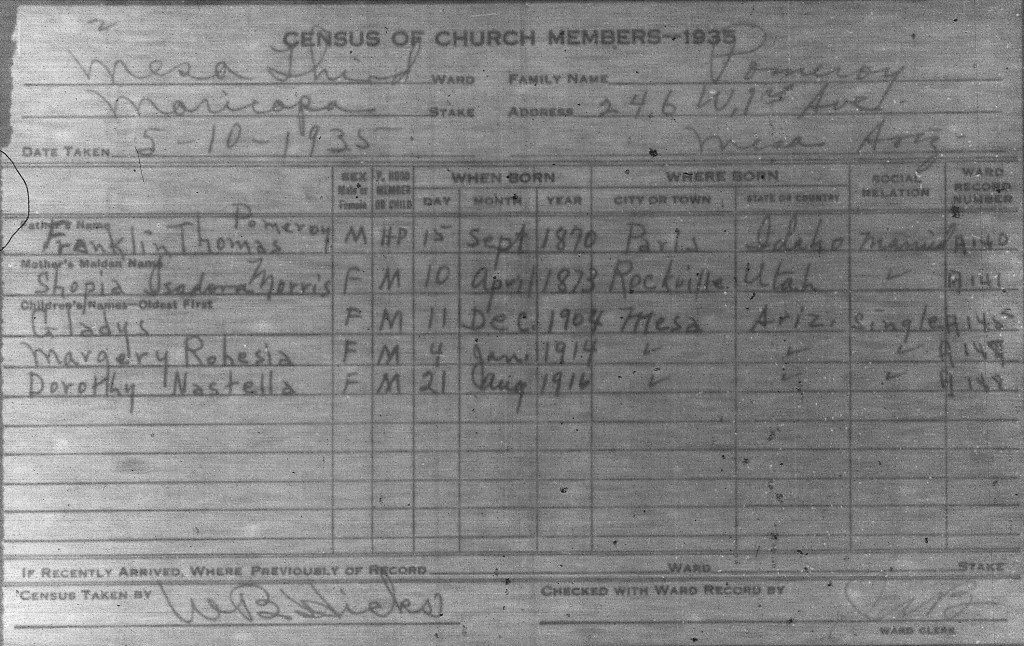 CENSUS OF CHURCH MEMBERS—1935
Mesa Third WARD FAMILY NAME Pomeroy
Maricopa STAKE ADDRESS 246 W. 1st Ave
DATE TAKEN 5-10-1935 Mesa Ariz
SEX Male or Female P. HOOD MEMBER OR CHILD WHEN BORN WHERE BORN SOCIAL RELATION WARD RECORD NUMBER
DAY MONTH YEAR CITY OR TOWN STATE OR COUNTRY
Father's Name Pomeroy
Franklin Thomas M HP 15 Sept 1870 Paris Idaho Married A140
Mother's Maiden Name
Shopia Isadora Morris F M 10 April 1873 Rockville Utah ✓ A141
Children's Names—Oldest First
Gladys F M 11 Dec. 1904 Mesa Ariz. Single A145
Margery Rohesia F M 4 Jan. 1914 ✓ ✓ ✓
Dorothy Nastella F M 21 Aug 1916 ✓ ✓ ✓ A148
IF RECENTLY ARRIVED, WHERE PREVIOUSLY OF RECORD WARD STAKE
CENSUS TAKEN BY W B Hicks CHECKED WITH WARD RECORD BY
WARD CLERK